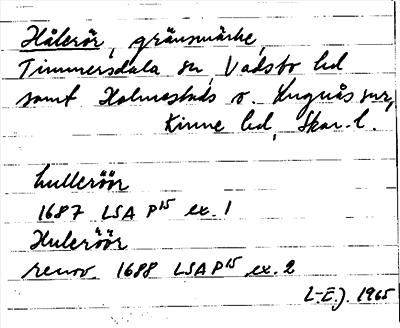 Hålerör, gränsmärke,
Timmersdala sn, Vadsbo hd
samt Holmestads o. Lugnås snr,
Kinne hd, Skar. l.
hulleröör
1687 LSA P15 ex. 1
Huleröör
renov. 1688 LSA P15 ex. 2
L-E.J. 1965